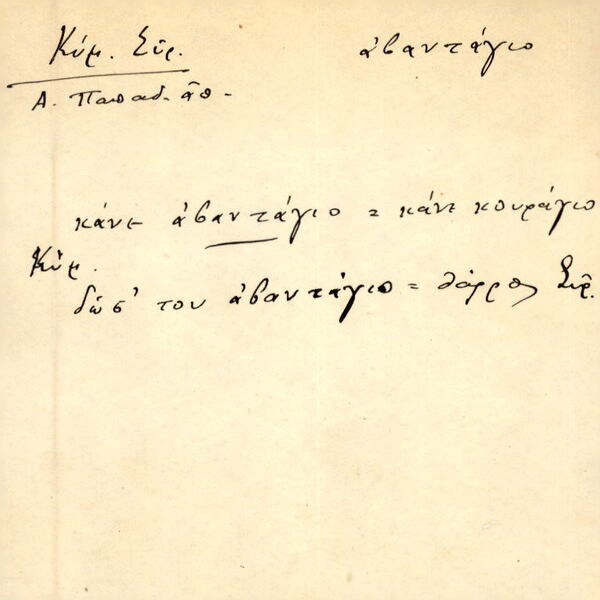 Κύμ. Σῦρ. ἀβαντάγιο
Α. Παπαδ.
κάνε ἀβαντάγιο = κάνε κουράγιο
Κύμ.
δῶσ' του ἀβαντάγιο = θάρρος Σῦρ.